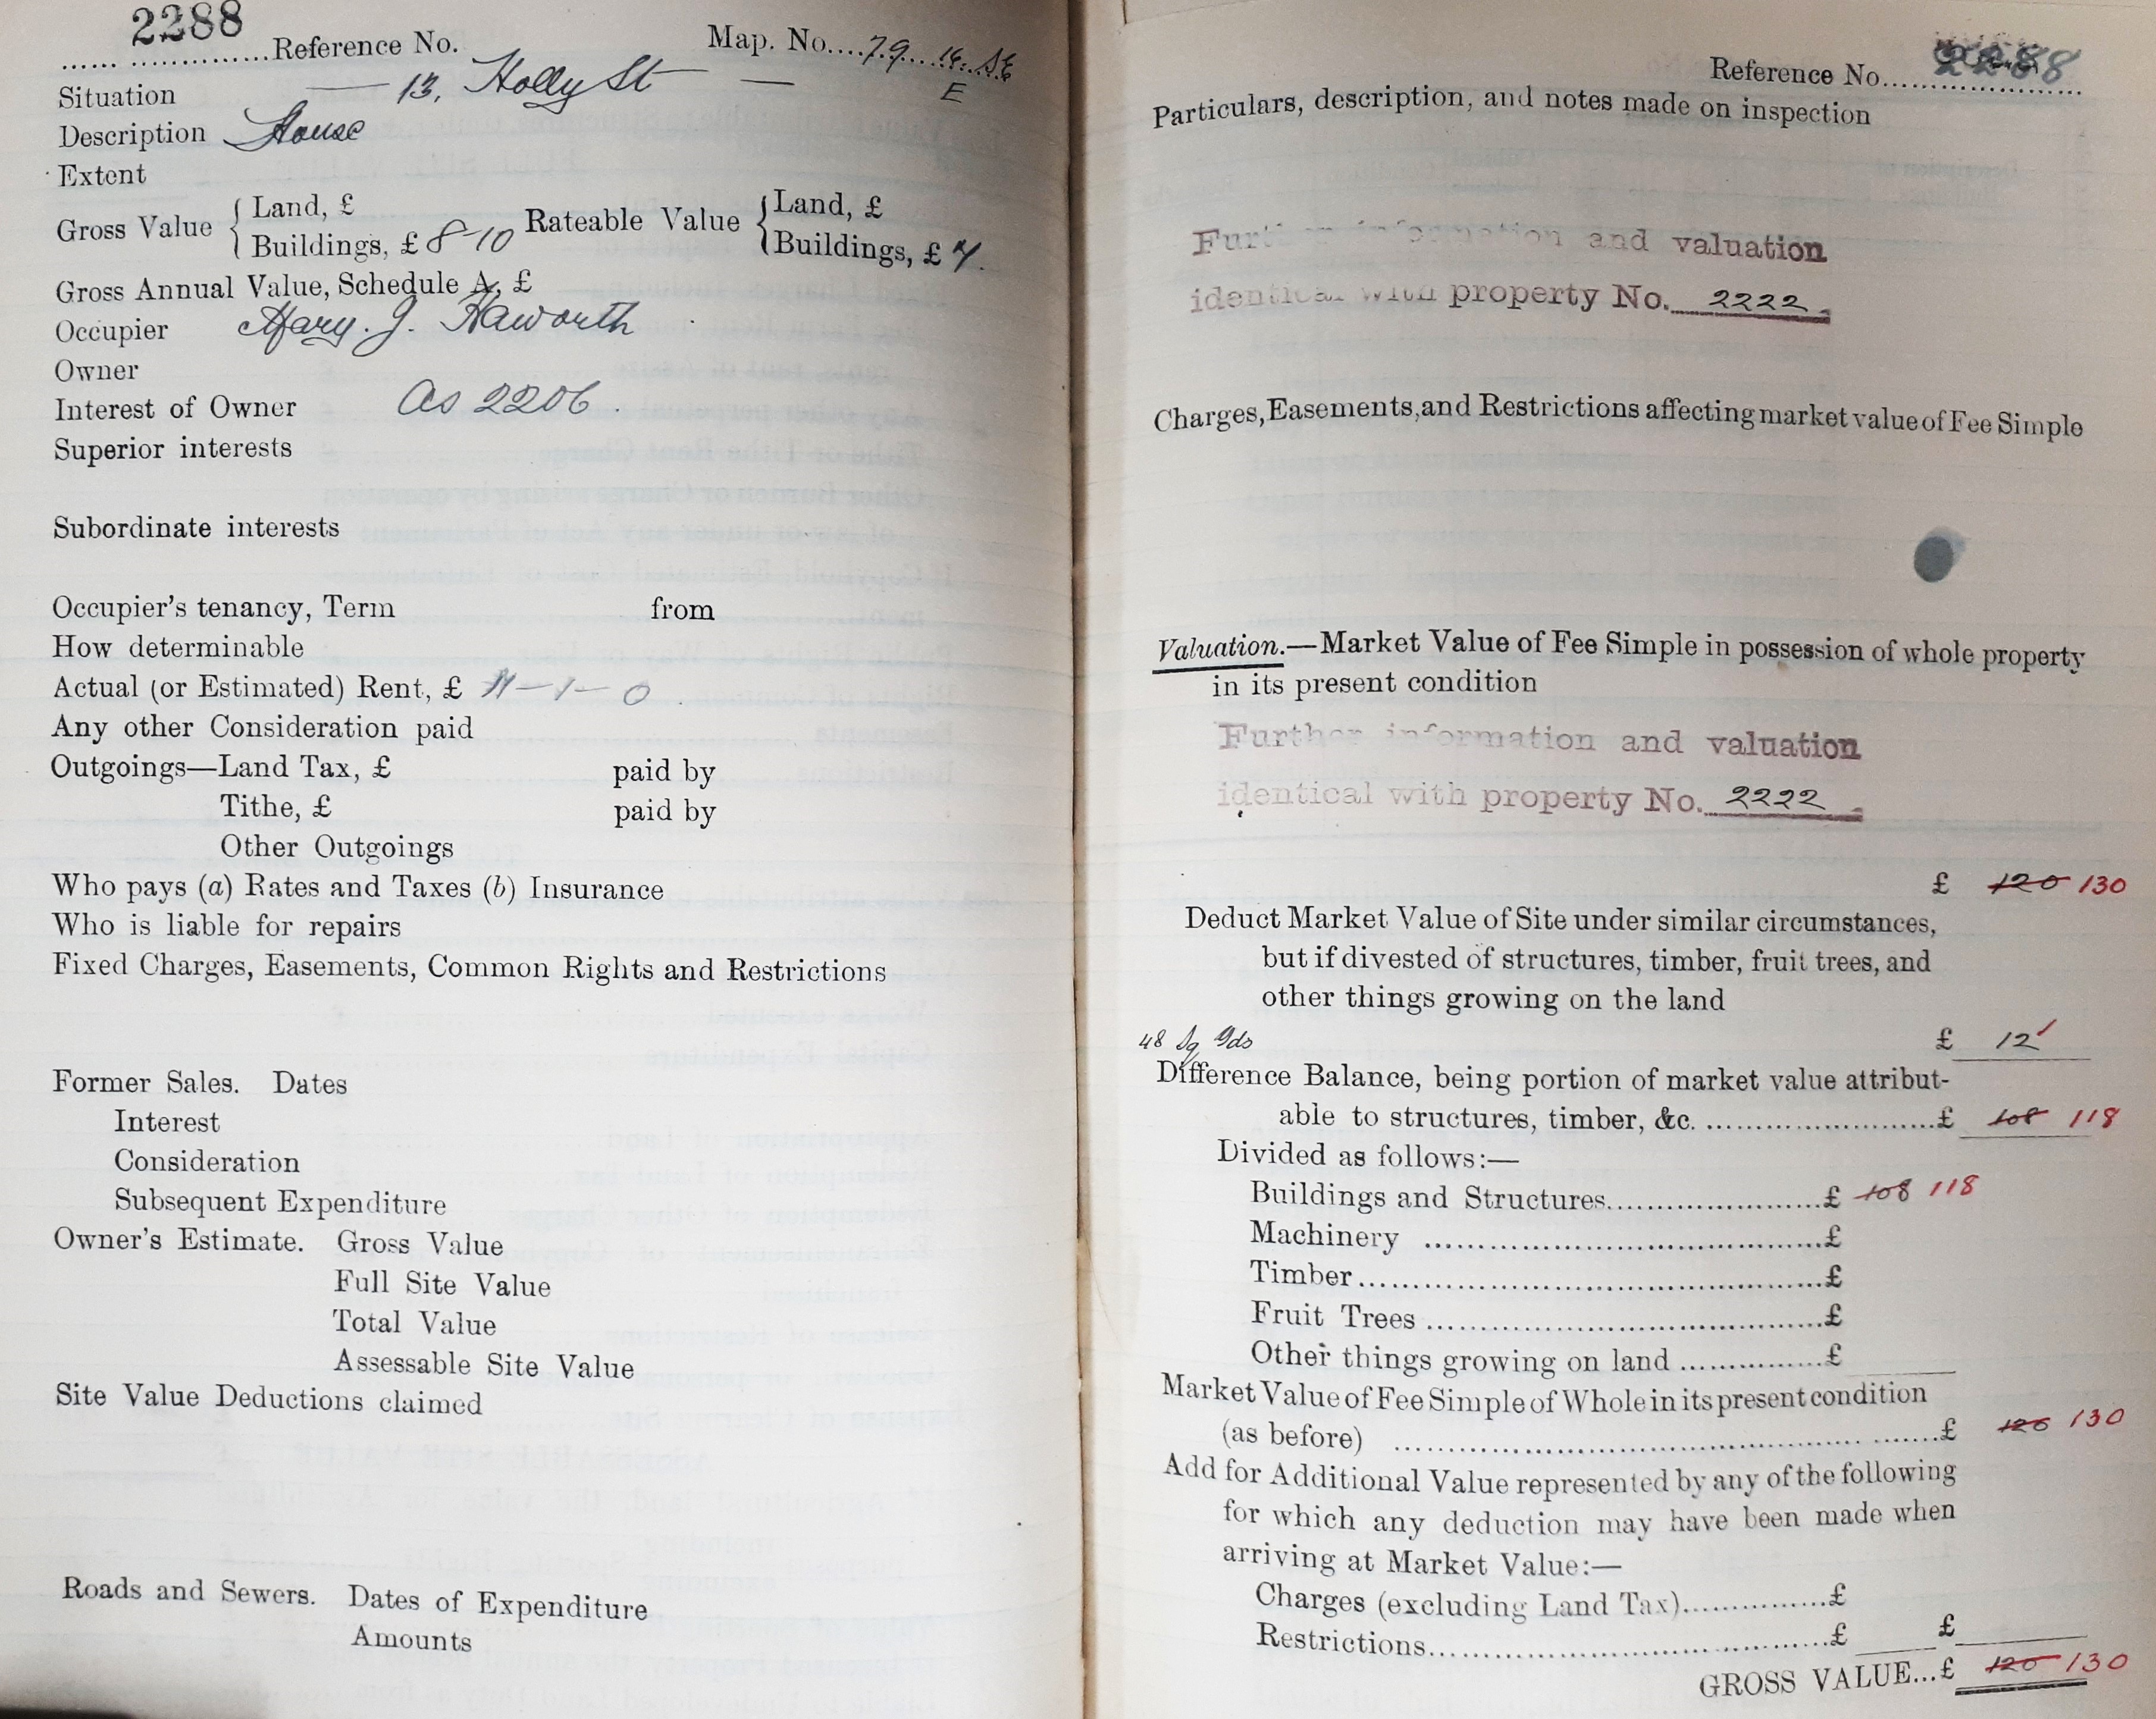 2288
...... ..............Reference No.
Map. No....79...16. SE
E
Situation — 13, Holly St — —
Description House
Extent
Gross Value { Land, £
Buildings, £ 8-10
Rateable Value { Land, £
Buildings, £ 7.
Gross Annual Value, Schedule A, £
Occupier Mary. J. Haworth
Owner
Interest of Owner as 2206.
Superior interests
Subordinate interests
Occupier's tenancy, Term from
How determinable
Actual (or Estimated) Rent, £ 11-1-0.
Any other Consideration paid
Outgoings—Land Tax, £ paid by
Tithe, £ paid by
Other Outgoings
Who pays (a) Rates and Taxes (b) Insurance
Who is liable for repairs
Fixed Charges, Easements, Common Rights and Restrictions
Former Sales. Dates
Interest
Consideration
Subsequent Expenditure
Owner's Estimate. Gross Value
Full Site Value
Total Value
Assessable Site Value
Site Value Deductions claimed
Roads and Sewers. Dates of Expenditure
Amounts
Reference No....2288
Particulars, description, and notes made on inspection
Further information and valuation
identical with property No. 2222.
Charges, Easements, and Restrictions affecting market value of Fee Simple
Valuation.—Market Value of Fee Simple in possession of whole property
in its present condition
Further information and valuation
identical with property No. 2222.
£ 120 130
Deduct Market Value of Site under similar circumstances,
but if divested of structures, timber, fruit trees, and
other things growing on the land
48 Sq Yds £ 12
Difference Balance, being portion of market value attribut-
able to structures, timber, &c. ..........................£ 108 118
Divided as follows:—
Buildings and Structures........................£ 108 118
Machinery ............................................£
Timber...................................................£
Fruit Trees ............................................£
Other things growing on land ................£
Market Value of Fee Simple of Whole in its present condition
(as before) ......................................................£ 120 130
Add for Additional Value represented by any of the following
for which any deduction may have been made when
arriving at Market Value:—
Charges (excluding Land Tax)................£
Restrictions............................................£ £
GROSS VALUE...£ 120 130